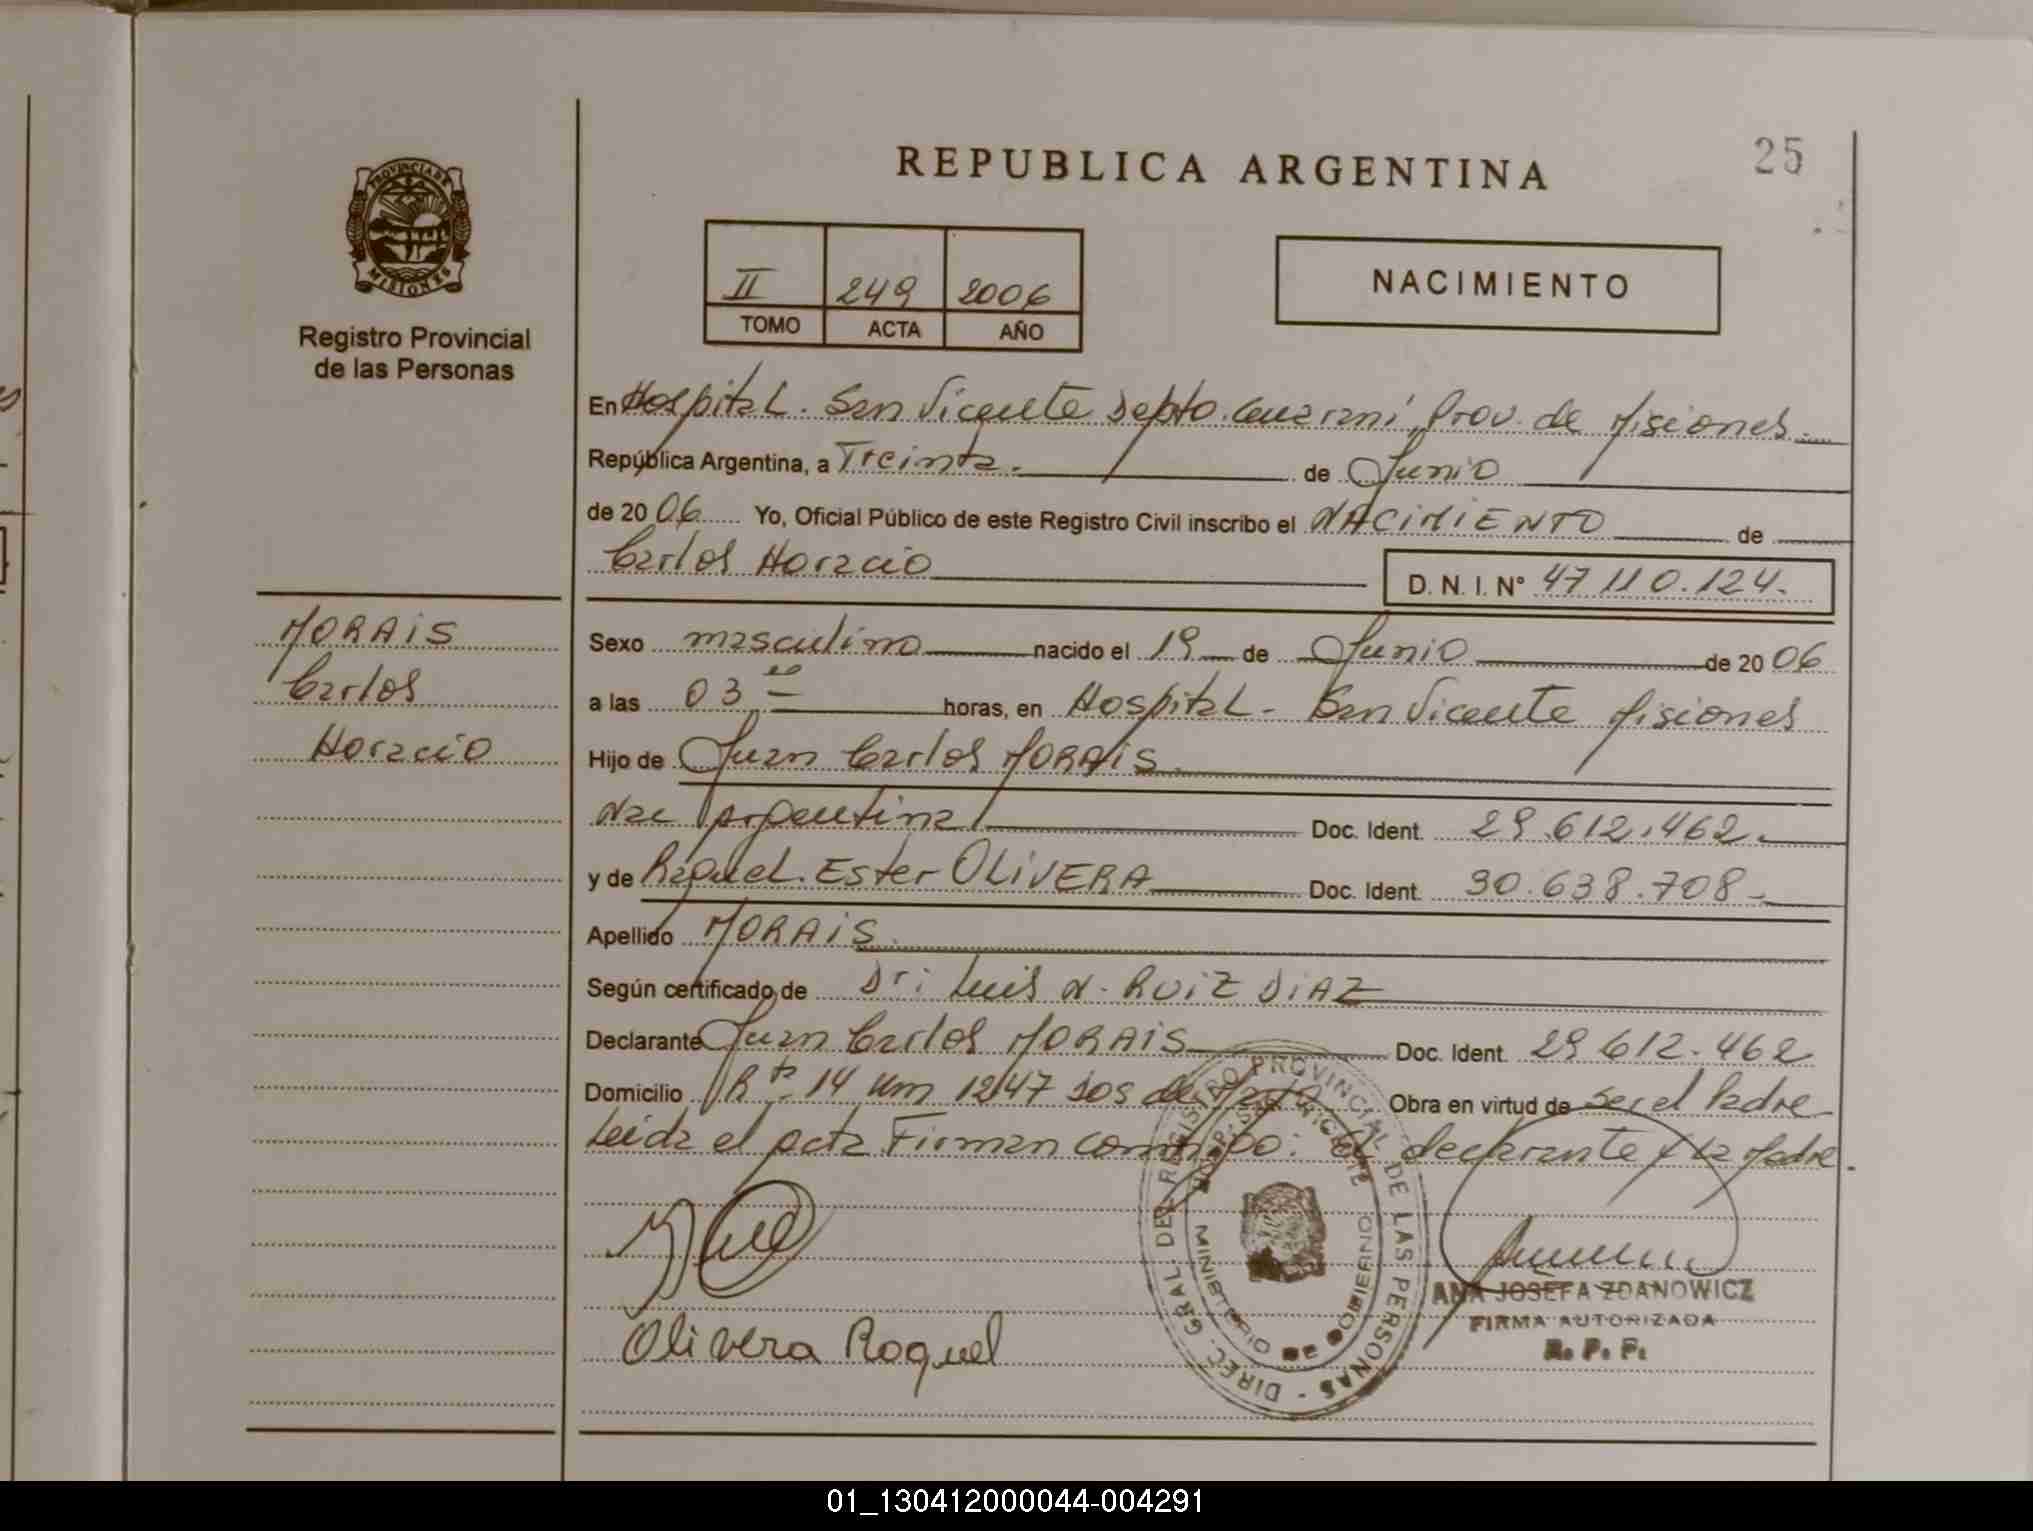 PROVINCIA DE
MISIONES
Registro Provincial
de las Personas
MORAIS
Carlos
Horacio
REPUBLICA ARGENTINA
25
II 249 2006
TOMO ACTA AÑO
NACIMIENTO
En Hospital. San Vicente Depto. Guaraní, Prov. de Misiones.
República Argentina, a Treinta. de Junio
de 2006 Yo, Oficial Público de este Registro Civil inscribo el NACIMIENTO de
Carlos Horacio D. N. I. N° 47 110.124.
Sexo masculino nacido el 19 de Junio de 2006
a las 03 horas, en Hospital - San Vicente Misiones
Hijo de Juan Carlos MORAIS.
Nac Argentina Doc. Ident. 29.612.462.
y de Raquel. Ester OLIVERA Doc. Ident. 30.638.708.
Apellido MORAIS.
Según certificado de Dr: Luis N. RUIZ DIAZ
Declarante Juan Carlos MORAIS Doc. Ident. 29 612.462
Domicilio Rta. 14 Km 1247 Dos de Mayo Obra en virtud de ser el Padre
Leida el acta Firman conmigo: el declarante y la Madre.
Olivera Roquel
DIREC. GRAL. DEL REGISTRO PROVINCIAL DE LAS PERSONAS
HOSP. SAN VICENTE
MINISTERIO DE GOBIERNO
ANA JOSEFA ZDANOWICZ
FIRMA AUTORIZADA
R. P. P.
01_130412000044-004291